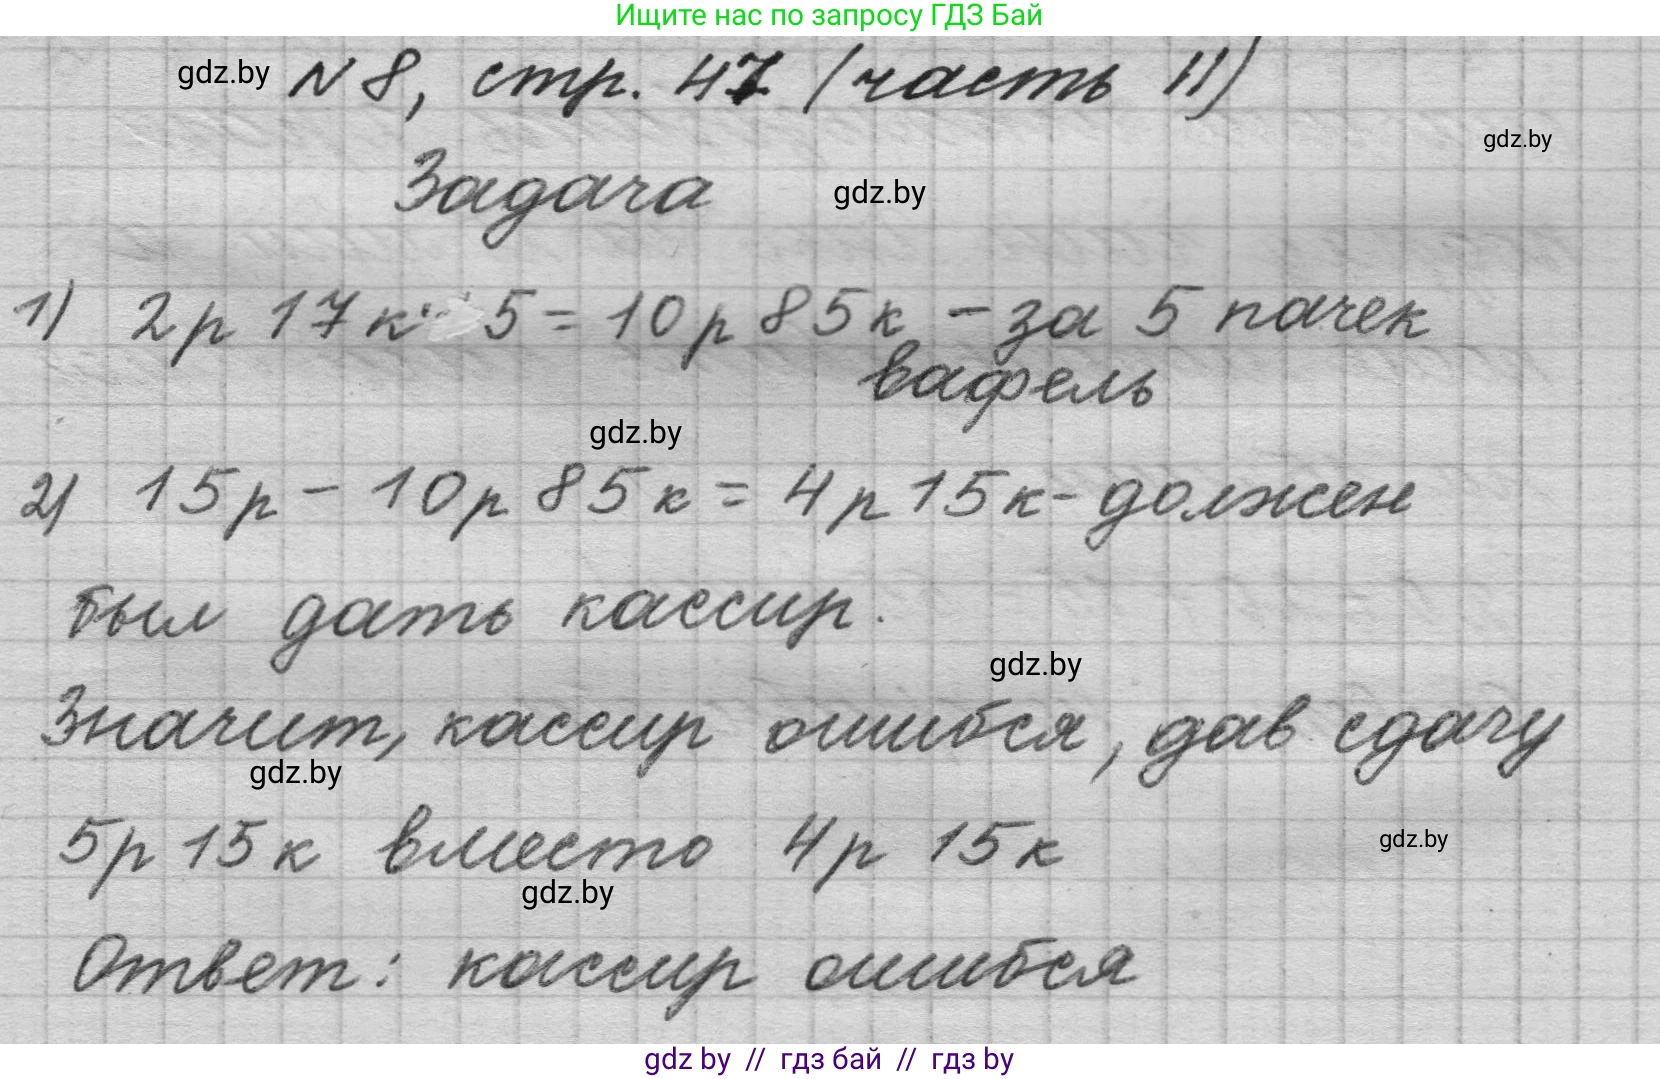 Ищите нас по запросу ГДЗ Бай
gdz.by № 8, стр. 47 (часть II)
gdz.by
Задача gdz.by
1) 2р 17к · 5 = 10р 85к - за 5 пачек
вафель
gdz.by
2) 15р - 10р 85к = 4р 15к - должен
был дать кассир.
gdz.by
Значит, кассир ошибся, дав сдачу
gdz.by
5р 15к вместо 4р 15к
gdz.by
gdz.by
Ответ: кассир ошибся
gdz by // гдз бай // гдз by